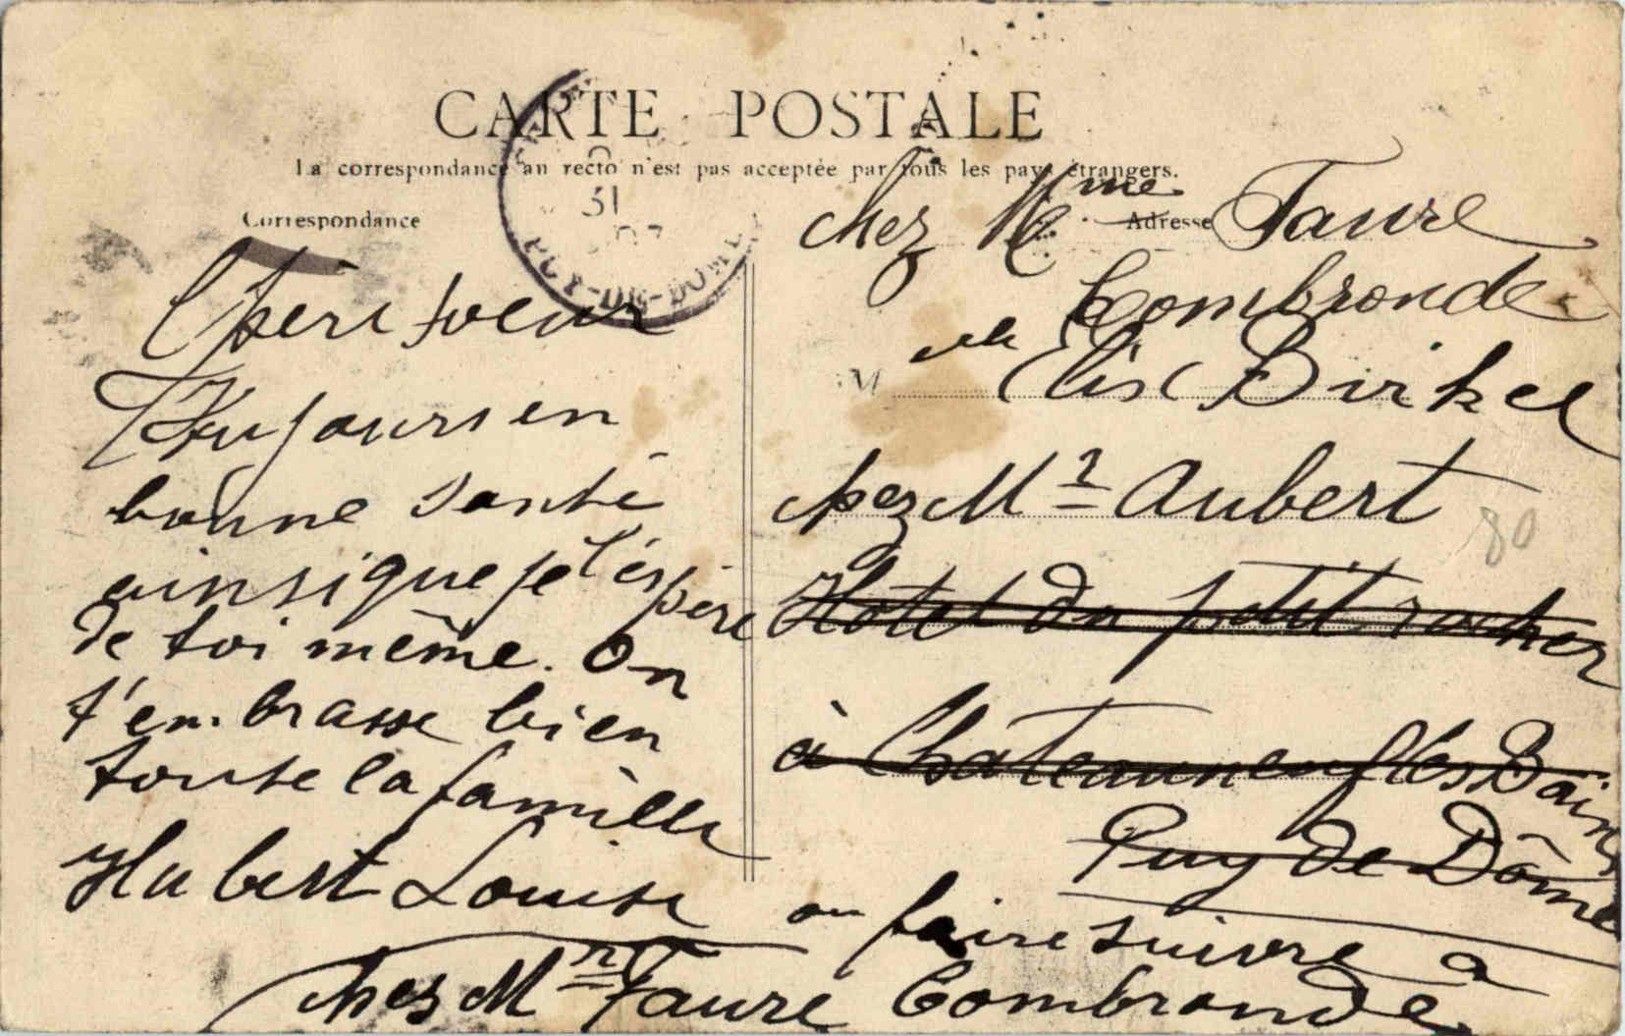 CARTE POSTALE
La correspondance au recto n'est pas acceptée par tous les pays étrangers.
Correspondance
Adresse
31
PUY-DE-DOME
Cheri soeur
Toujours en
bonne santé
ainsi que je l'éspère
de toi même. On
t'embrasse bien
toute la famille
Hubert Louise
chez Mme Faure
Combronde
M elle Elise Birkel
chez Mr Aubert
Hotel du petit rocher
à Chateauneuf les Bains
Puy de Dôme
ou faire suivre à
chez Mr Faure Combronde
80